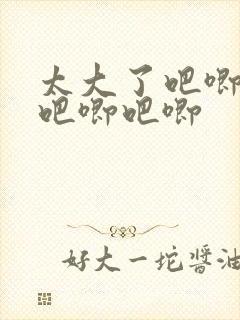 太大了吧唧
吧唧吧唧
好大一坨醬油